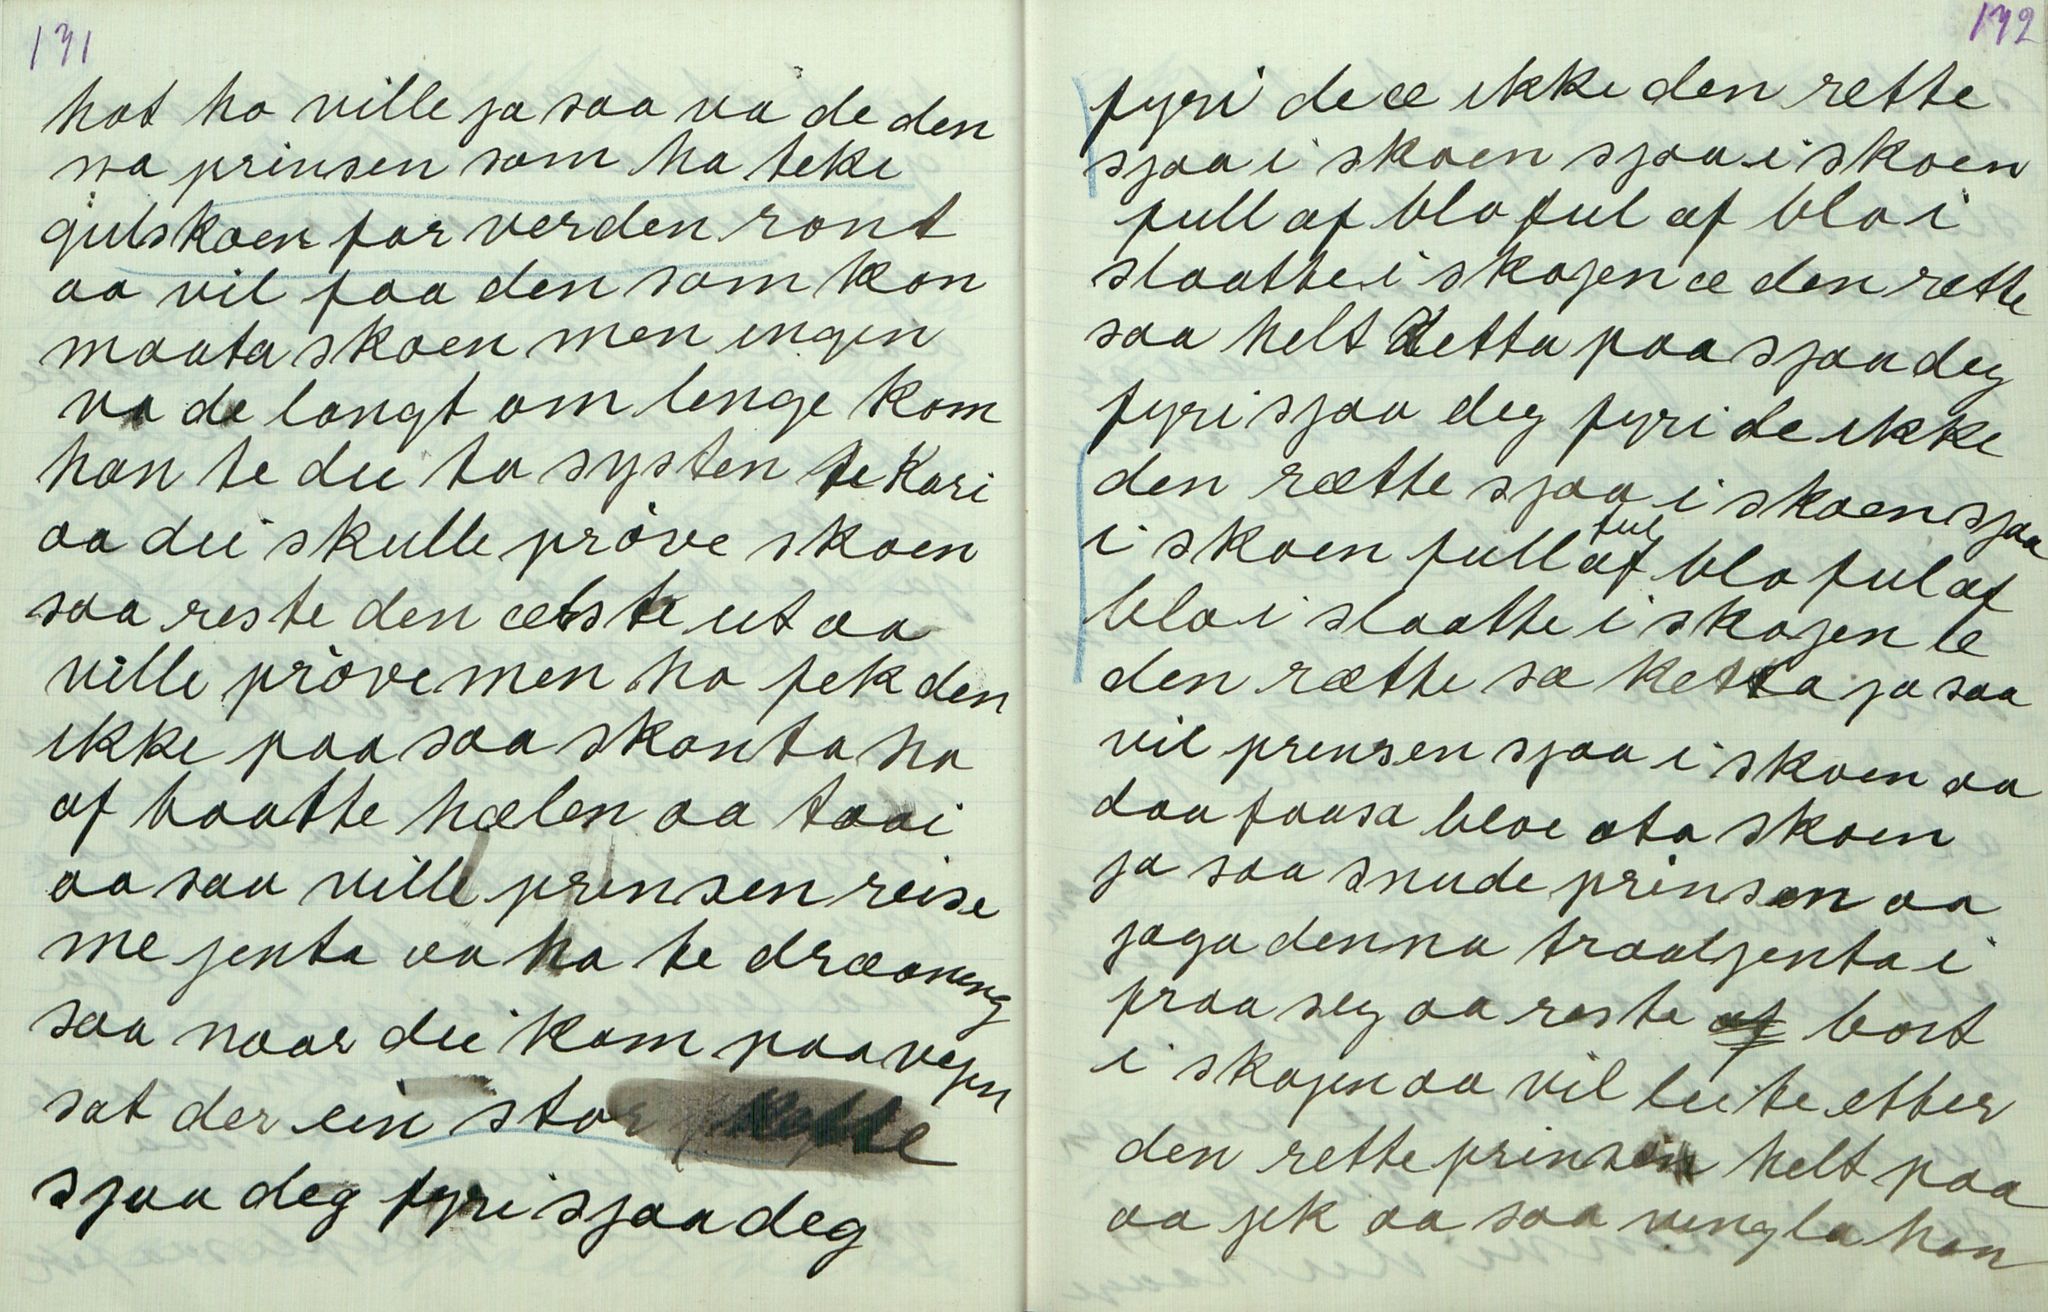 131
hot ho ville ja saa va de den
na prinsen som ha teke
gulskoen for verden ront
aa vil faa den som kan
maata skoen men ingen
va de langt om lenge kom
han te dei to systen te Kari
aa dei skulle pröve skoen
saa reste den ælste ut aa
ville pröve men ho fek den
ikke paa saa skanta ho
af baatte hælen aa taai
aa saa ville prinsen reise
me jenta aa ha te dræaneng
saa naar dei kom paa vejen
sat der ein stor katte
sjaa deg fyri sjaa deg
132
fyri de æ ikke den rette
sjaa i skoen sjaa i skoen
full af blo ful af blo i
slaatte i skojen æ den rette
saa helt detta paa sjaa deg
fyri sjaa deg fyri de ikke
den rætte sjaa i skoen sjaa
i skoen full ful af blo ful af
blo i slaatte i skojen æ
den rætte sa ketta ja saa
vil prensen sjaa i skoen aa
daa faasa bloe ota skoen
ja saa snude prinsen aa
jaga denna traaljenta i
fraa seg aa reste af bort
i skojen aa vil leite etter
den rette prinsen helt paa
aa jek aa saa vengla han